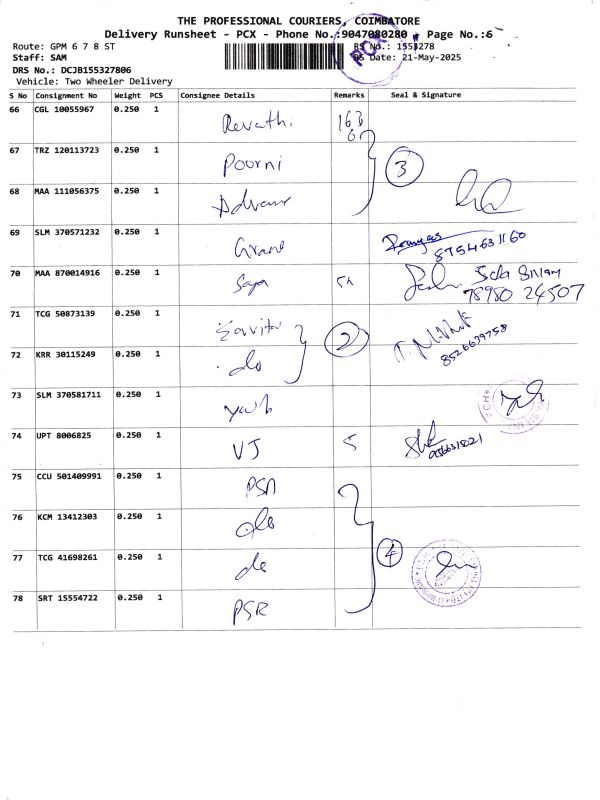 THE PROFESSIONAL COURIERS, COIMBATORE
Delivery Runsheet - PCX - Phone No.:9047080280 Page No.:6
Route: GPM 6 7 8 ST RS No.: 1553278
Staff: SAM RS Date: 21-May-2025
DRS No.: DCJB155327806
Vehicle: Two Wheeler Delivery
PCX
S No Consignment No Weight PCS Consignee Details Remarks Seal & Signature
66 CGL 10055967 0.250 1 Revathi
67 TRZ 120113723 0.250 1 Poorni 3
68 MAA 111056375 0.250 1
69 SLM 370571232 0.250 1 8754631160
70 MAA 870014916 0.250 1 78980 24507
71 TCG 50873139 0.250 1 2
72 KRR 30115249 0.250 1 do 8526639758
73 SLM 370581711 0.250 1
74 UPT 8006825 0.250 1 VJ 5
75 CCU 501409991 0.250 1
76 KCM 13412303 0.250 1 do
77 TCG 41698261 0.250 1 do 4
78 SRT 15554722 0.250 1 PSR